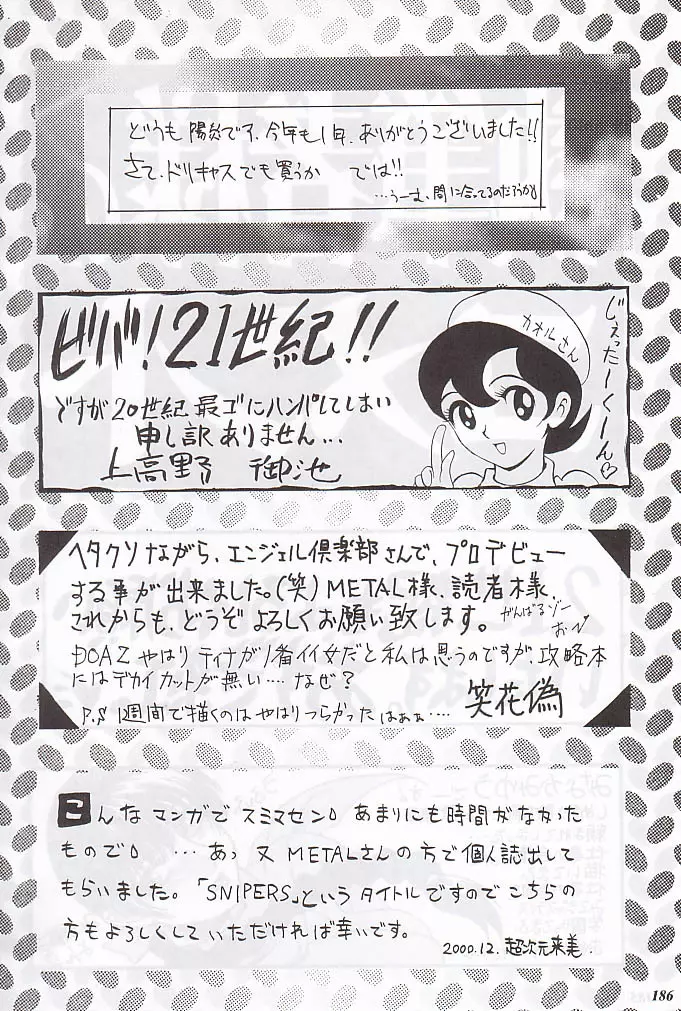 どうも 陽炎です、今年も1年、ありがとうございました!!
さて、ドリキャスでも買うか では!!
…うーむ、間に合ってるのだろうか
ビバ!21世紀!!
ですが20世紀最ゴにハンパしてしまい
申し訳ありません...
上高野 御池
カオルさん
じぇったーくーん♡
ヘタクソながら、エンジェル倶楽部さんで、プロデビュー
する事が出来ました。(笑)METAL様、読者様、
これからも、どうぞよろしくお願い致します。
がんばるゾー
おーv
DOA2 やはり ティナが1番イイ女だと私は思うのですが、攻略本
にはデカイカットが無い…. なぜ?
P.S 1週間で描くのはやはりつらかった はぁぁ….
笑花偽
こんなマンガでスミマセン。あまりにも時間がなかった
もので。 …あっ又METALさんの方で個人誌出して
もらいました。「SNIPERS」というタイトルですのでこちらの
方もよろしくしていただければ幸いです。
2000.12. 超次元来美.
186